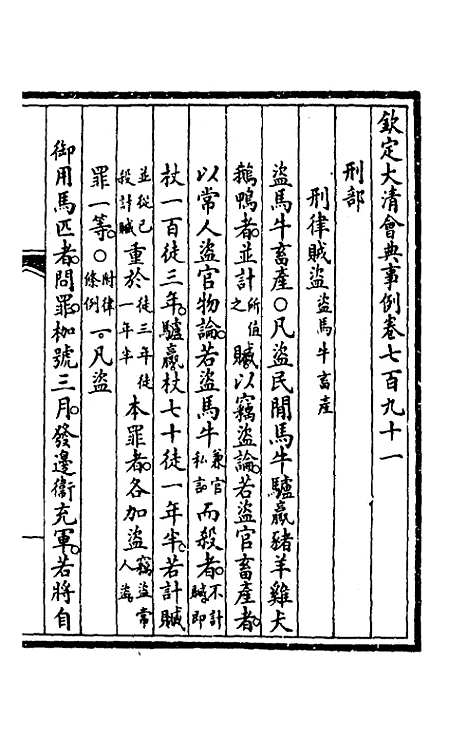 欽定大清會典事例卷七百九十一
刑部
刑律賊盜盜馬牛畜產
盜馬牛畜產○凡盜民閒馬牛驢羸豬羊雞犬
鵝鴨者並計所值之贓以竊盜論若盜官畜產者
以常人盜官物論若盜馬牛兼官私言而殺者不計贓即
杖一百徒三年驢羸杖七十徒一年半若計贓
並從已殺計贓重於徒三年徒一年半本罪者各加盜竊盜常人盜
罪一等○附律條例一凡盜
御用馬匹者問罪枷號三月發邊衞充軍若將自
一